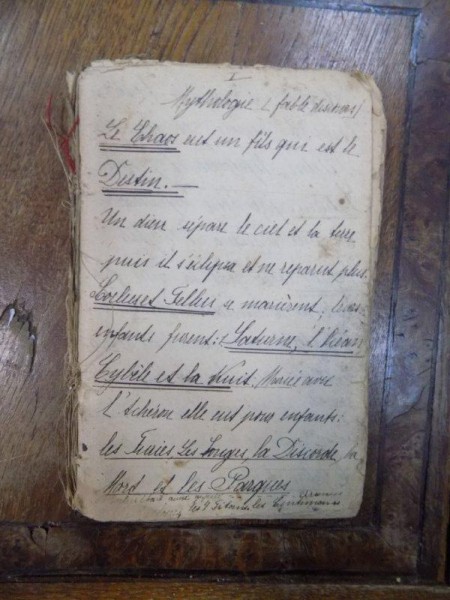 I
Mythologie
Le Chaos eut un fils qui est le
Destin. —
Un dieu sépare le ciel et la terre
puis il s'éclipsa et ne reparut plus.
et Tellus se marièrent, leurs
enfants furent: Saturne, l'Océan
Cybèle et la Nuit. Mariée avec
l'Achéron elle eut pour enfants:
les Furies Les Songes la Discorde la
Mort et les Parques
les